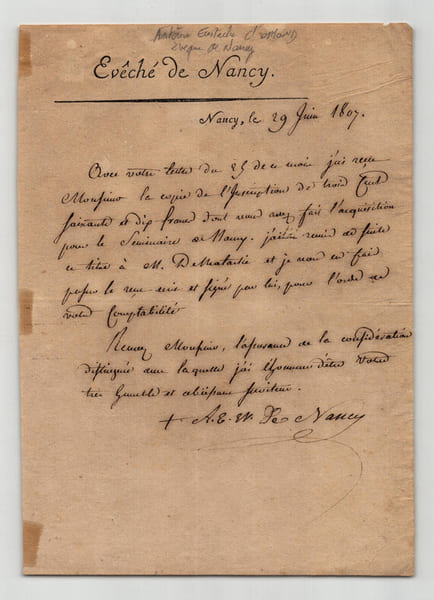 Antoine Eustache d'OSMOND
Evêque de Nancy
Evêché de Nancy.
Nancy, le 29 Juin 1807.
Avec votre lettre du 25 de ce mois j'ai reçu
Monsieur la copie de l'Inscription de trois Cent
soixante et dix francs dont vous avez fait l'acquisition
pour le Séminaire de Nancy. j'ai remis de suite
ce titre à M. et je vous en fais
passer le reçu et signé par lui, pour l'ordre de
votre Comptabilité
Recevez Monsieur, l'assurance de la considération
distinguée avec laquelle j'ai l'honneur d'être Votre
très humble et obéissant serviteur.
+ A. E. Ev. De Nancy